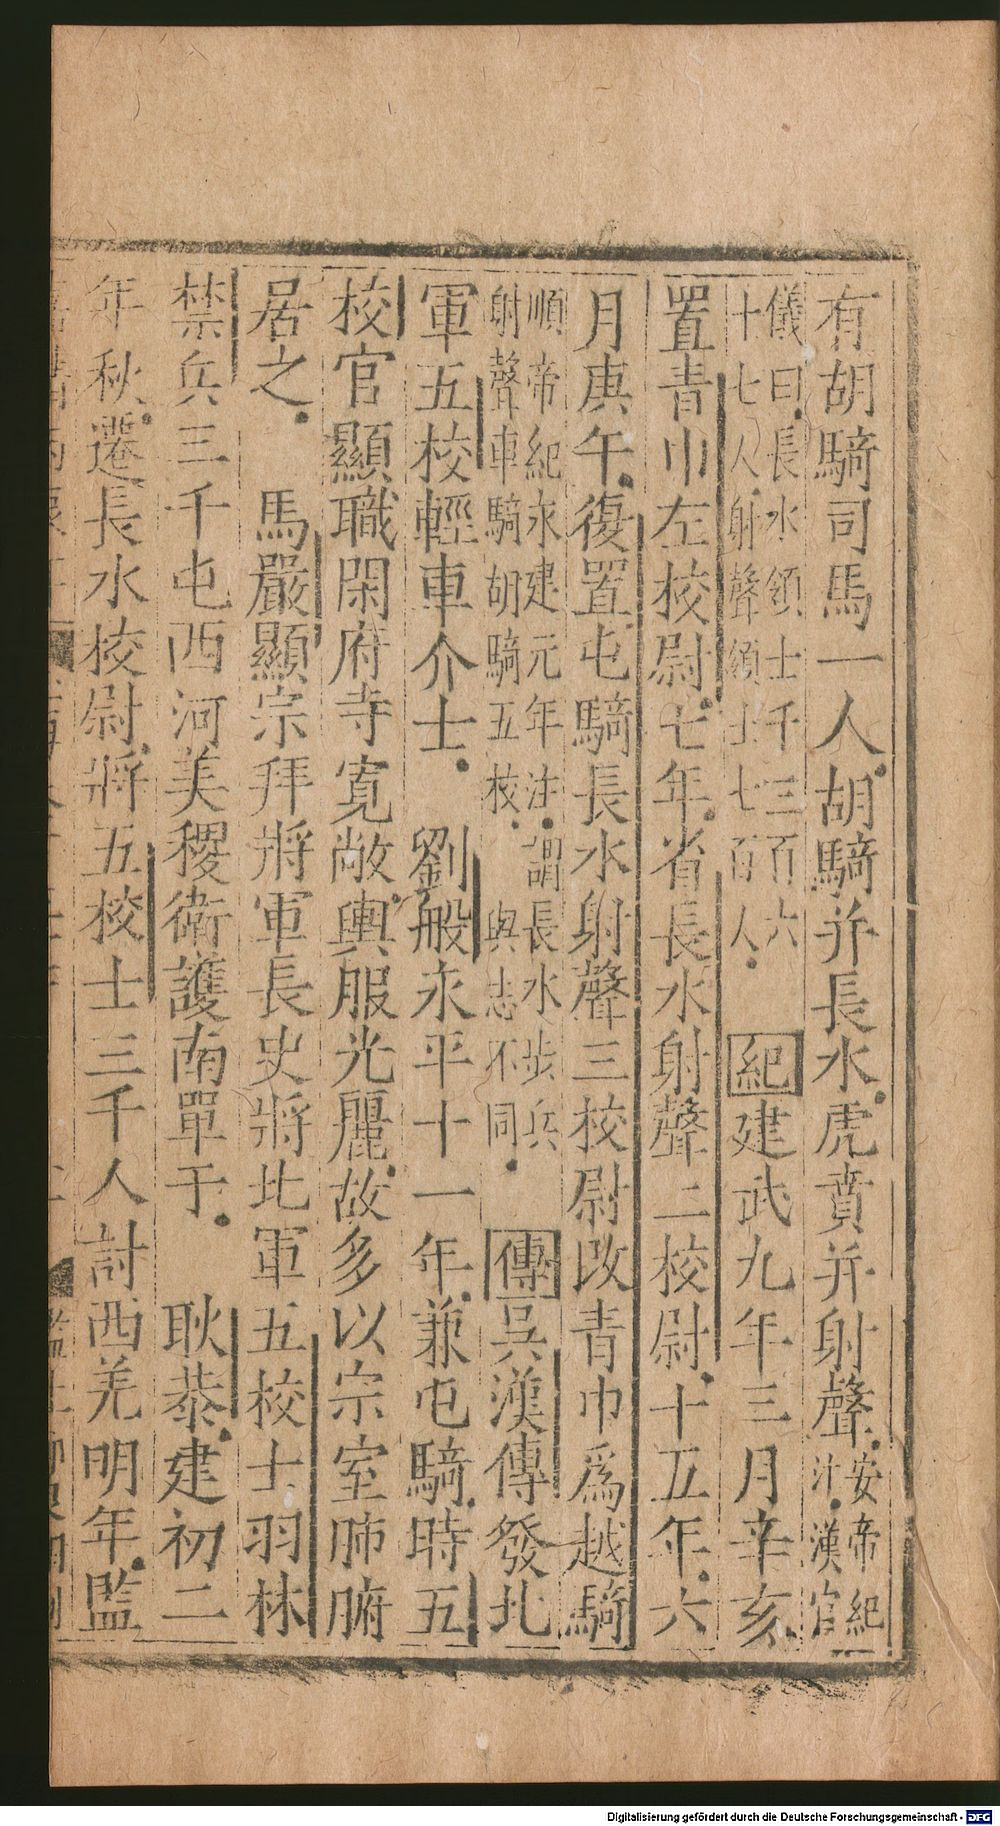 有胡騎司馬一人胡騎并長水虎賁并射聲安帝紀
注漢官
儀曰長水領士千三百六
十七人射聲領士七百人紀建武九年三月辛亥
置青巾左校尉七年省長水射聲二校尉十五年六
月庚午復置屯騎長水射聲三校尉改青巾爲越騎
順帝紀永建元年注謂長水步兵
射聲車騎胡騎五校與志不同傳吳漢傳發北
軍五校輕車介士劉般永平十一年兼屯騎時五
校官顯職閑府寺寬敞輿服光麗故多以宗室肺腑
居之馬嚴顯宗拜將軍長史將北軍五校士羽林
禁兵三千屯西河美稷衛護南單于耿恭建初二
年秋遷長水校尉將五校士三千人討西羌明年監
Digitalisierung gefördert durch die Deutsche Forschungsgemeinschaft - DFG